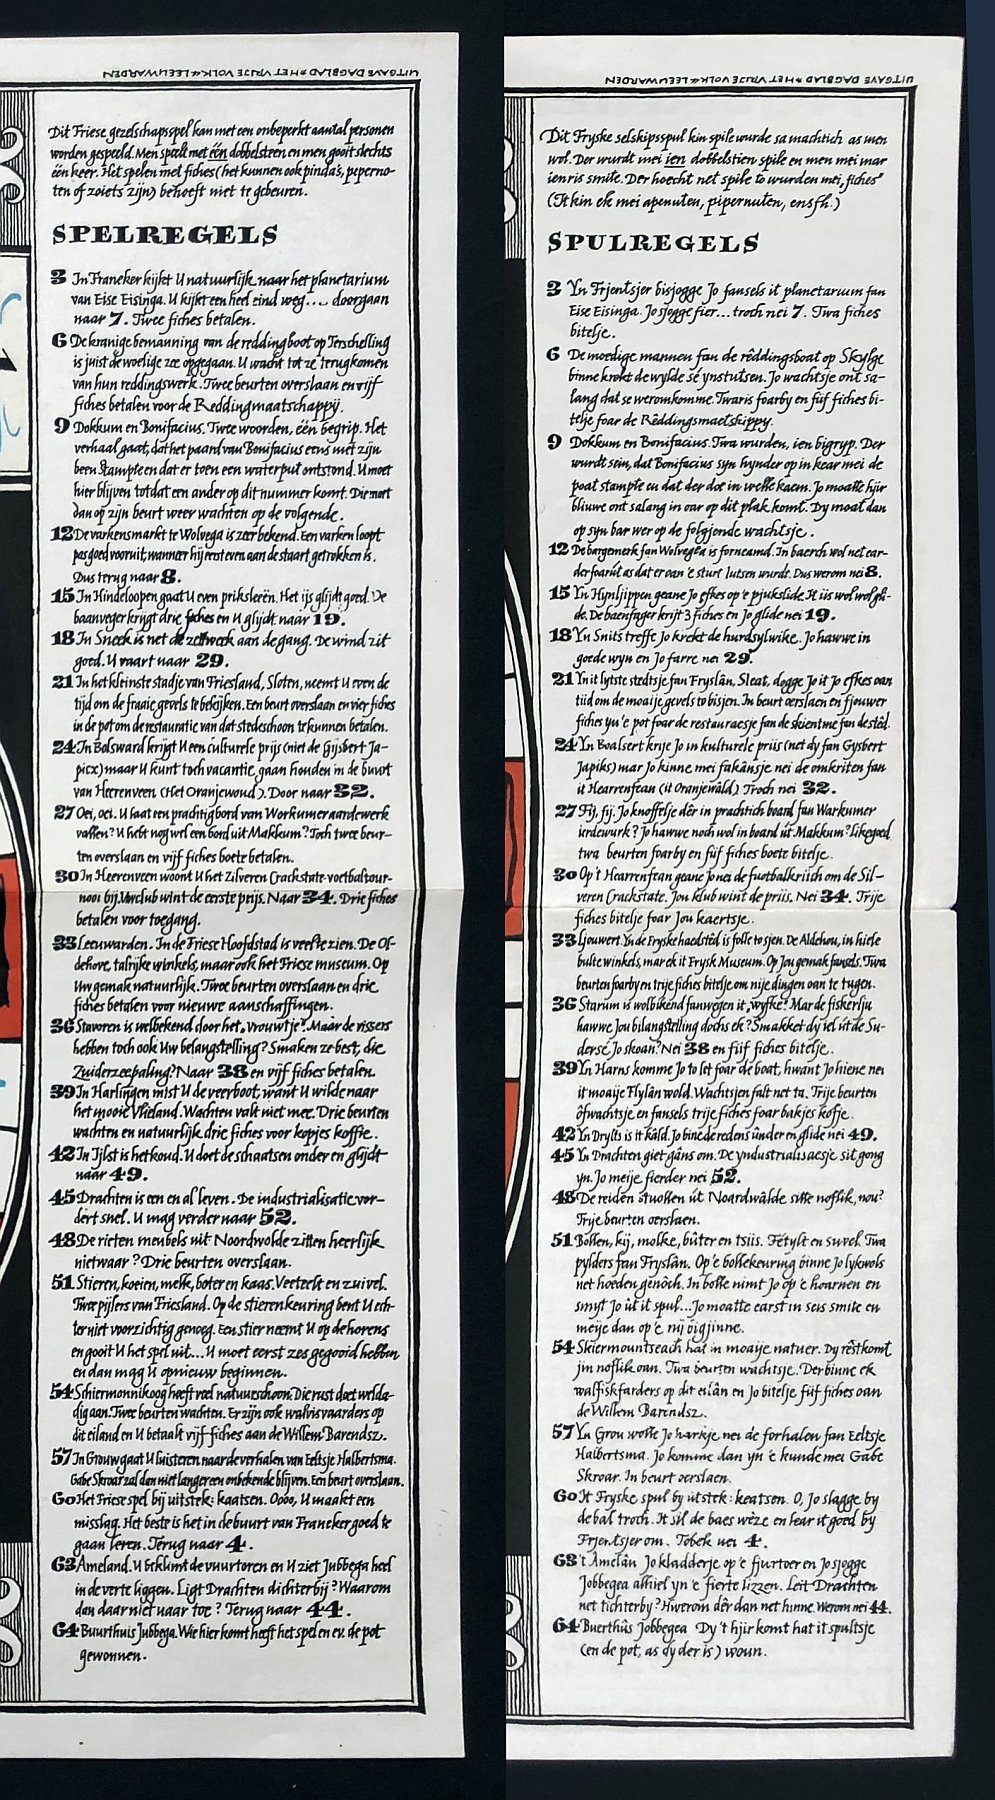 UITGAVE DAGBLAD »HET VRIJE VOLK« LEEUWARDEN
Dit Friese gezelschapsspel kan met een onbeperkt aantal personen
worden gespeeld. Men speelt met één dobbelsteen en men gooit slechts
één keer. Het spelen met fiches (het kunnen ook pinda's, peperno-
ten of zoiets zijn) behoeft niet te gebeuren.
SPELREGELS
3 In Franeker kijkt U natuurlijk naar het planetarium
van Eise Eisinga. U kijkt een heel eind weg.... doorgaan
naar 7. Twee fiches betalen.
6 De kranige bemanning van de reddingboot op Terschelling
is juist de woelige zee opgegaan. U wacht tot ze terugkomen
van hun reddingswerk. Twee beurten overslaan en vijf
fiches betalen voor de Reddingmaatschappij.
9 Dokkum en Bonifacius. Twee woorden, één begrip. Het
verhaal gaat, dat het paard van Bonifacius eens met zijn
been stampte en dat er toen een waterput ontstond. U moet
hier blijven totdat een ander op dit nummer komt. Die moet
dan op zijn beurt weer wachten op de volgende.
12 De varkensmarkt te Wolvega is zeer bekend. Een varken loopt
pas goed vooruit, wanneer hij eerst even aan de staart getrokken is.
Dus terug naar 8.
15 In Hindeloopen gaat U even priksleeën. Het ijs glijdt goed. De
baanveger krijgt drie fiches en U glijdt naar 19.
18 In Sneek is net de zeilweek aan de gang. De wind zit
goed. U vaart naar 29.
21 In het kleinste stadje van Friesland, Sloten, neemt U even de
tijd om de fraaie gevels te bekijken. Een beurt overslaan en vier fiches
in de pot om de restauratie van dat stedeschoon te kunnen betalen.
24 In Bolsward krijgt U een culturele prijs (niet de Gijsbert Ja-
picx) maar U kunt toch vacantie gaan houden in de buurt
van Heerenveen (Het Oranjewoud). Door naar 32.
27 Oei, oei. U laat een prachtig bord van Workumer aardewerk
vallen? U hebt nog wel een bord uit Makkum? Toch twee beur-
ten overslaan en vijf fiches boete betalen.
30 In Heerenveen woont U het Zilveren Crackstate-voetbaltour-
nooi bij. Uw club wint de eerste prijs. Naar 34. Drie fiches
betalen voor toegang.
33 Leeuwarden. In de Friese Hoofdstad is veel te zien. De Ol-
dehove, talrijke winkels, maar ook het Friese museum. Op
Uw gemak natuurlijk. Twee beurten overslaan en drie
fiches betalen voor nieuwe aanschaffingen.
36 Stavoren is welbekend door het „vrouwtje". Maar de vissers
hebben toch ook Uw belangstelling? Smaken ze best, die
Zuiderzeepaling? Naar 38 en vijf fiches betalen.
39 In Harlingen mist U de veerboot, want U wilde naar
het mooie Vlieland. Wachten valt niet mee. Drie beurten
wachten en natuurlijk drie fiches voor kopjes koffie.
42 In IJlst is het koud. U doet de schaatsen onder en glijdt
naar 49.
45 Drachten is een en al leven. De industrialisatie vor-
dert snel. U mag verder naar 52.
48 De rieten meubels uit Noordwolde zitten heerlijk
nietwaar? Drie beurten overslaan.
51 Stieren, koeien, melk, boter en kaas. Veeteelt en zuivel.
Twee pijlers van Friesland. Op de stierenkeuring bent U ech-
ter niet voorzichtig genoeg. Een stier neemt U op de horens
en gooit U het spel uit... U moet eerst zes gegooid hebben
en dan mag U opnieuw beginnen.
54 Schiermonnikoog heeft veel natuurschoon. Die rust doet welda-
dig aan. Twee beurten wachten. Er zijn ook walvisvaarders op
dit eiland en U betaalt vijf fiches aan de Willem Barendsz.
57 In Grouw gaat U luisteren naar de verhalen van Eeltsje Halbertsma.
Gabe Skroar zal dan niet langer een onbekende blijven. Een beurt overslaan.
60 Het Friese spel bij uitstek: kaatsen. Oooo, U maakt een
misslag. Het beste is het in de buurt van Franeker goed te
gaan leren. Terug naar 4.
63 Ameland. U beklimt de vuurtoren en U ziet Jubbega heel
in de verte liggen. Ligt Drachten dichterbij? Waarom
dan daar niet naar toe? Terug naar 44.
64 Buurthuis Jubbega. Wie hier komt heeft het spel en ev. de pot
gewonnen.
UITGAVE DAGBLAD »HET VRIJE VOLK« LEEUWARDEN
Dit Fryske selskipsspul kin spile wurde sa machtich as men
wol. Der wurdt mei ien dobbelstien spile en men mei mar
ienris smite. Der hoecht net spile to wurden mei „fiches"
(It kin ek mei apenuten, pipernuten, ensfh.)
SPULREGELS
3 Yn Frjentsjer bisjogge Jo fansels it planetarium fan
Eise Eisinga. Jo sjogge fier... troch nei 7. Twa fiches
bitelje.
6 De moedige mannen fan de rêddingsboat op Skylge
binne krekt de wylde sé ynstutsen. Jo wachtsje ont sa-
lang dat se weromkomme. Twaris foarby en fiif fiches bi-
telje foar de Rêddingsmaetskippy.
9 Dokkum en Bonifacius. Twa wurden, ien bigryp. Der
wurdt sein, dat Bonifacius syn hynder op in kear mei de
poat stampte en dat der doe in welle kaem. Jo moatte hjir
bliuwe ont salang in oar op dit plak komt. Dy moat dan
op syn bar wer op de folgjende wachtsje.
12 De bargemerk fan Wolvega is forneamd. In baerch wol net ear-
der foarút as dat er oan 'e sturt lutsen wurdt. Dus werom nei 8.
15 Yn Hynljippen geane Jo efkes op 'e pjukslide. It iis wol wol gli-
de. De baenfager krijt 3 fiches en Jo glide nei 19.
18 Yn Snits treffe Jo krekt de hurdsylwike. Jo hawwe in
goede wyn en Jo farre nei 29.
21 Yn it lytste stedtsje fan Fryslân, Sleat, dogge Jo it Jo efkes oan
tiid om de moaije gevels to bisjen. In beurt oerslaen en fjouwer
fiches yn 'e pot foar de restauraesje fan de skientme fan de stêd.
24 Yn Boalsert krije Jo in kulturele priis (net dy fan Gysbert
Japiks) mar Jo kinne mei fakânsje nei de omkriten fan
it Hearrenfean (it Oranjewâld) Troch nei 32.
27 Fij, fij. Jo knoffelje dêr in prachtich board fan Warkumer
ierdewurk? Jo hawwe noch wol in board út Makkum? Likegoed
twa beurten foarby en fiif fiches boete bitelje.
30 Op 't Hearrenfean geane Jo nei de fuotbalkriich om de Sil-
veren Crackstate. Jou klub wint de priis. Nei 34. Trije
fiches bitelje foar Jou kaertsje.
33 Ljouwert. Yn de Fryske haedstêd is folle to sjen. De Aldehou, in hiele
bulte winkels, mar ek it Frysk Museum. Op Jou gemak fansels. Twa
beurten foarby en trije fiches bitelje om nije dingen oan te tugen.
36 Starum is wolbikend fanwegen it „wyfke". Mar de fiskerlju
hawwe Jou bilangstelling dochs ek? Smakket dy iel út de Su-
dersé Jo skoan? Nei 38 en fiif fiches bitelje.
39 Yn Harns komme Jo to let foar de boat, hwant Jo hiene nei
it moaije Flylân wold. Wachtsjen falt net ta. Trije beurten
ôfwachtsje en fansels trije fiches foar bakjes kofje.
42 Yn Drylts is it kâld. Jo bine de redens ûnder en glide nei 49.
45 Yn Drachten giet gâns om. De yndustrialisaesje sit gong
yn. Jo meije fierder nei 52.
48 De reiden stuollen út Noardwâlde sitte noflik, nou?
Trije beurten oerslaen.
51 Bollen, kij, molke, bûter en tsiis. Fétylt en suvel. Twa
pylders fan Fryslân. Op 'e bollekeuring binne Jo lykwols
net hoeden genôch. In bolle nimt Jo op 'e hoarnen en
smyt Jo út it spul... Jo moatte earst in seis smite en
meije dan op 'e nij bigjinne.
54 Skiermountseach hat in moaije natuer. Dy rêst komt
jin noflik oan. Twa beurten wachtsje. Der binne ek
walfiskfarders op dit eilân en Jo bitelje fiif fiches oan
de Willem Barendsz.
57 Yn Grou wolle Jo harkje nei de forhalen fan Eeltsje
Halbertsma. Jo komme dan yn 'e kunde mei Gabe
Skroar. In beurt oerslaen.
60 It Fryske spul by útstek: keatsen. O, Jo slagge by
de bal troch. It sil de baes wêze en lear it goed by
Frjentsjer om. Tobek nei 4.
63 't Amelân Jo kladderje op 'e fjurtoer en Jo sjogge
Jobbegea alhiel yn 'e fierte lizzen. Leit Drachten
net tichterby? Hwerom dêr dan net hinne. Werom nei 44.
64 Buerthûs Jobbegea Dy 't hjir komt hat it spultsje
(en de pot, as dy der is) woun.